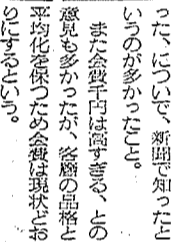 った、について、新聞で知ったと
いうのが多かったこと。
また会費千円は高すぎる、との
意見も多かったが、客層の品格と
平均化を保つため会費は現状どお
りにするという。